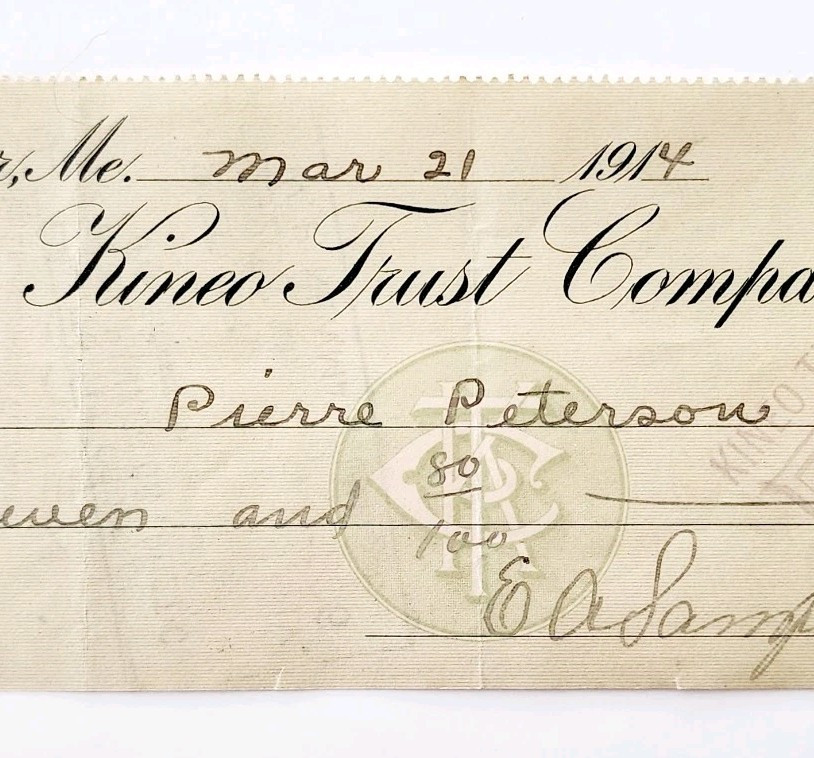 r, Me. Mar 21 1914
Kineo Trust Compa
Pierre Peterson
KINEO T
even and 80/100
E A Samp
KTC